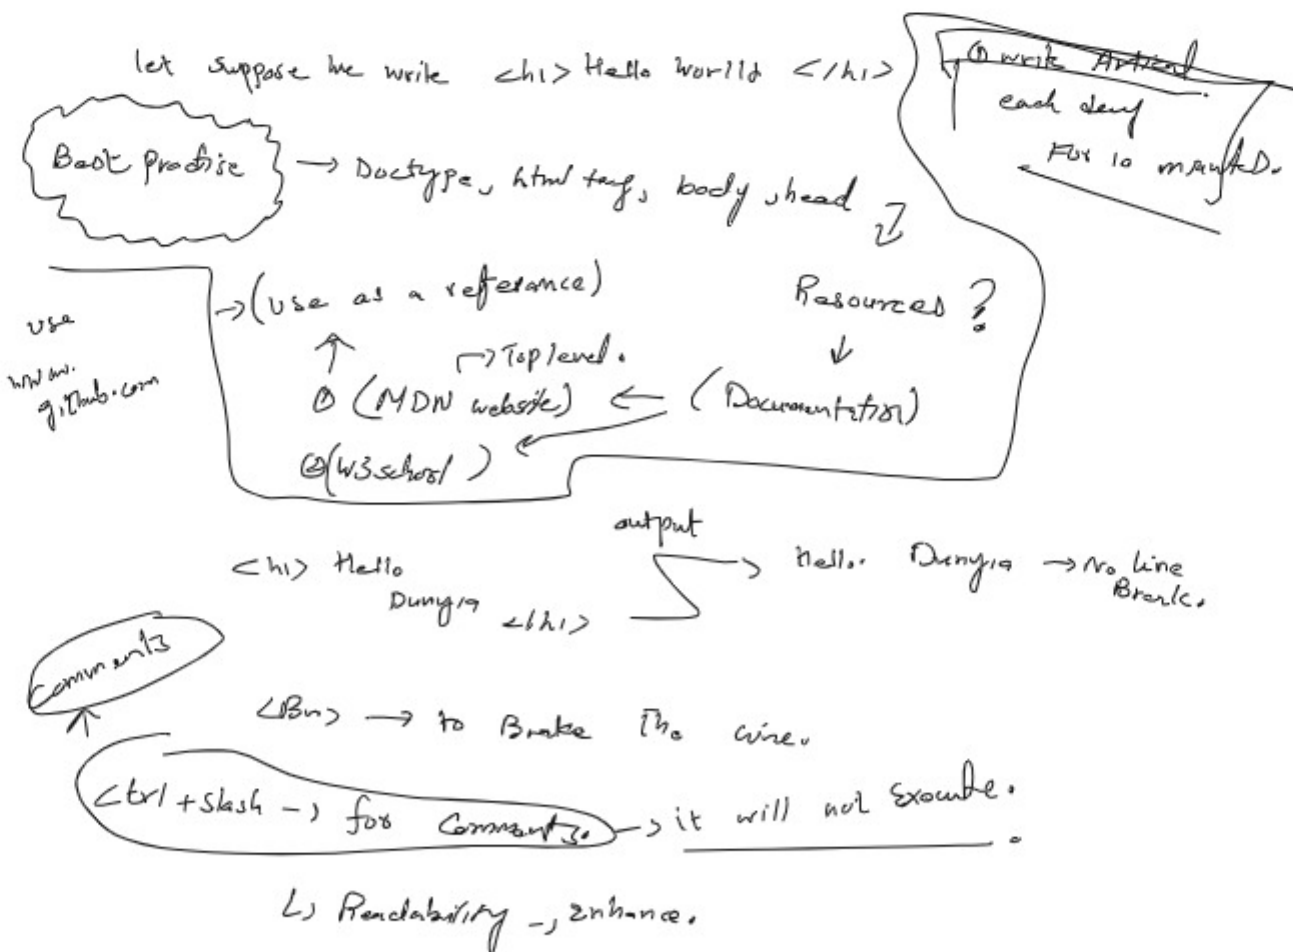 let suppose we write <h1> Hello World </h1>
① write
each
For 10
Best Practise → Doctype, html tag, body, head
→ (use as a referance)
Resources ?
use
www.
github.com
→ Top level.
① (MDN website) ← (Documentation)
② (W3school)
output
<h1> Hello
Dunyia </h1>
Hello. Dunyia → No line
Break.
Comments
<Br> → to Brake The
Ctrl + slash → for Comments. → it will not Execute.
↳ Readability → Enhance.